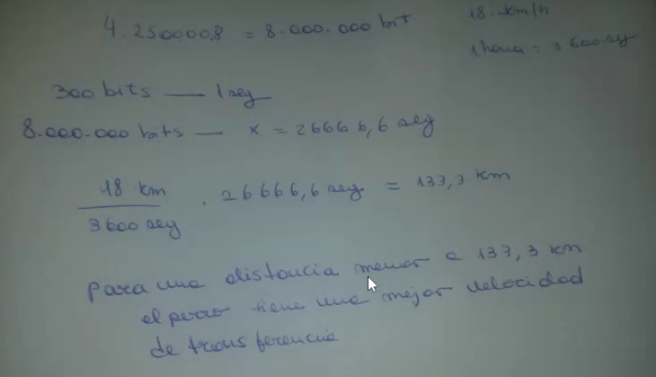 4.250000.8 = 8.000.000 bit
18. km/h
1 hora = 3600 seg
300 bits — 1 seg
8.000.000 bits — x = 26666,6 seg
18 km / 3600 seg . 26666,6 seg = 133,3 km
para una distancia menor a 133,3 km
el perro tiene una mejor velocidad
de transferencia